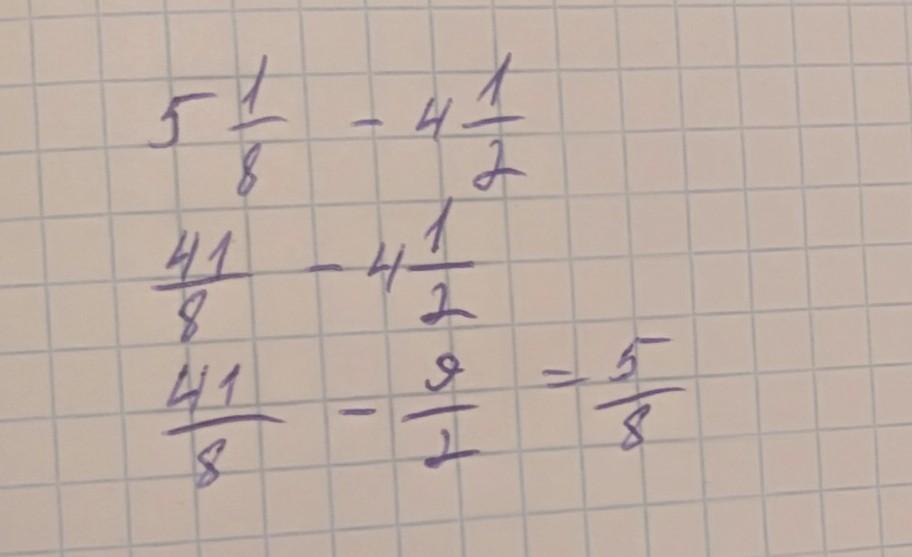 5 1/8 - 4 1/2
41/8 - 4 1/2
41/8 - 9/2 = 5/8